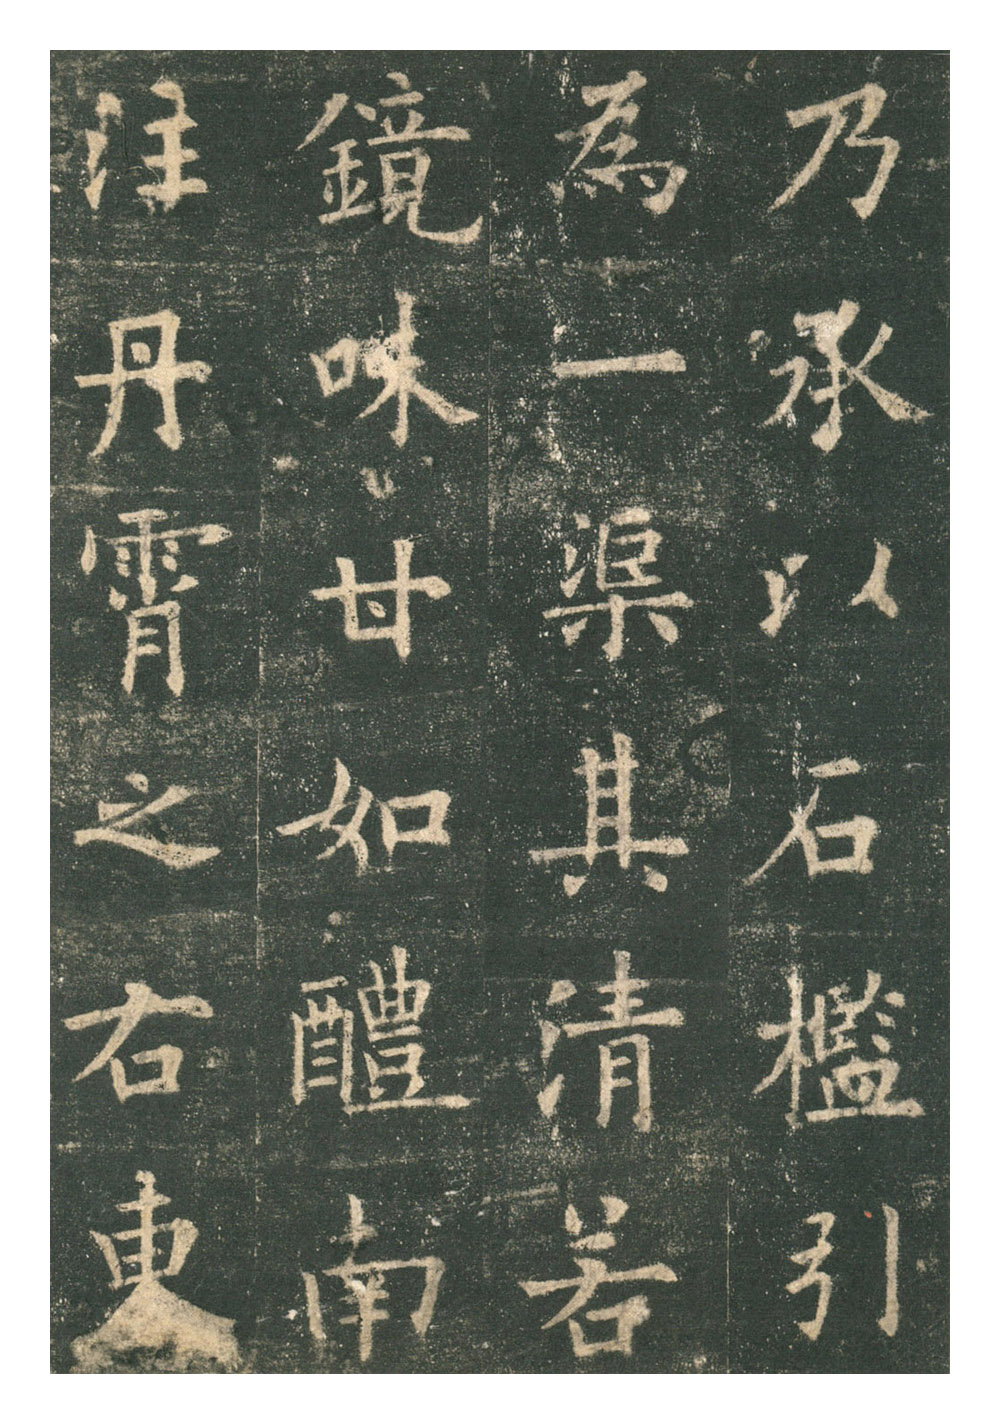 乃承以石檻引
為一渠其清若
鏡味甘如醴南
注丹霄之右東